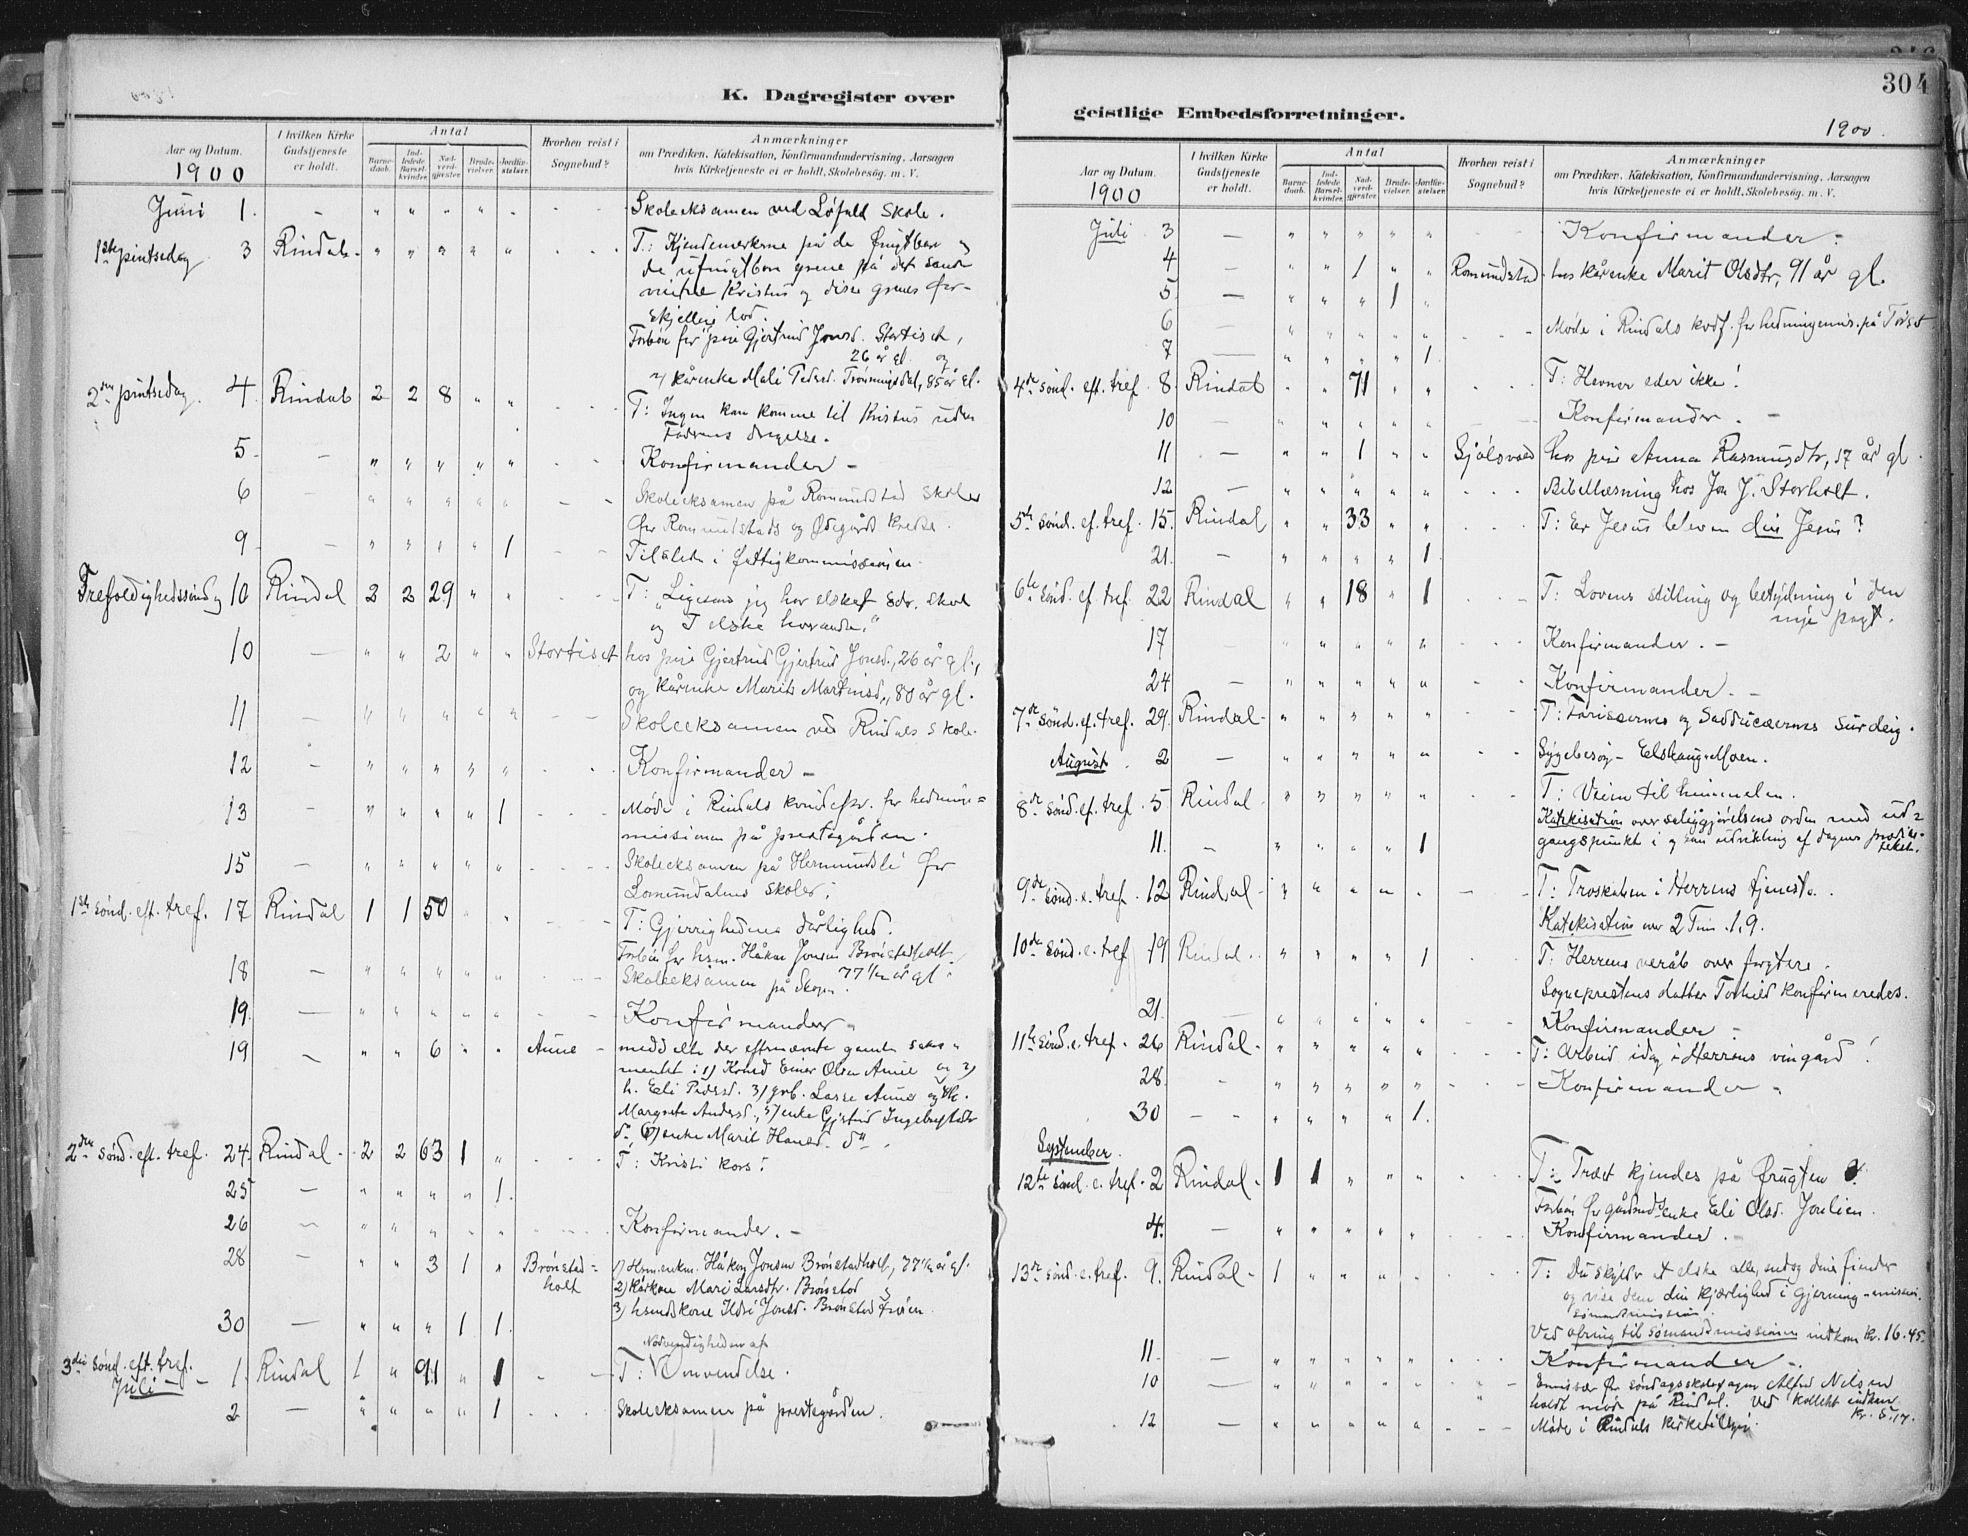 K. Dagregister over
Aar og Datum.
1900
I hvilken Kirke Gudstjeneste er holdt.
Antal
Barnedaab.
Indledede Barselkvinder.
Nadverdgjæster.
Brudevielser.
Jordfæstelser.
Hvorhen reist i Sognebud?
Anmærkninger
om Prædiken, Katekisation, Konfirmandundervisning, Aarsagen
hvis Kirketjeneste ei er holdt, Skolebesøg, m. V.
Juni 1. - " " " " " Skoleeksamen ved Løfald Skole.
1ste pintsedag 3 Rindal - " " " " " T: Kjendemerkerne på de frugtbare og
de ufrugtbare grene på det sande
vintræ Kristus og disse grenes for-
skjellige lod.
Forbøn for pige Gjertrud Jonsd. Stortiset,
26 år gl. og
2) kårenke Mali Pedersd. Trønningsdal, 85 år gl.
2den pintsedag 4 Rindal 2 2 8 " " T: Ingen kan komme til Kristus uden
Faderens dragelse.
5 - " " " " " Konfirmander -
6 - " " " " " Skoleeksamen på Romundstad Skole
for Romundstads og Ødegårds kredse.
9 - " " " " 1 Tilsted i fattigkommissionen.
Trefoldighedssøndag 10 Rindal 2 2 29 " " T: "Ligesom jeg har elsket Eder, skal
og I elske hverandre."
10 - " " 2 " " Stortiset hos pige Gjertrud Gjertrud Jonsd., 26 år gl.,
og kårenke Marit Martinsd., 80 år gl.
11 - " " " " " Skoleeksamen ved Rindals Skole.
12 - " " " " " Konfirmander -
13 - " " " " 1 Møde i Rindals kvindefor. for hedninge=
missionen på prestegården.
15 - " " " " " Skoleeksamen på Hermundsli for
Lomundalens skoler.
1ste sønd. eft. tref. 17 Rindal 1 1 50 " " T: Gjerrighedens dårlighed.
Forbøn for hsm. Håkon Jonsen Brønstadholt,
77 1/2 år gl.
18 - " " " " " Skoleeksamen på Skogen.
19. - " " " " " Konfirmander
19 - " " 6 " " Aune - meddelte der efternævnte gamle sakra-
mentet: 1) Kmd Einer Olsen Aune og 2)
h. Eli Pedersd. 3) grb. Lasse Aune og 4) k.
Margrete Andersd., 5) enke Gjertrud Ingebrigtsdtr
do, 6) enke Marit Hansd. do.
2den sønd. eft. tref. 24. Rindal - 2 2 63 1 " T: Kristi kors!
25 - " " " " 1.
26 - " " " " " Konfirmander. -
28 - " " 3 1 " Brønstad= holt 1) Hsm.enkm. Håkon Jonsen Brønstadholt, 77 1/2 år gl.
2) kårkone Mari Larsdtr. Brønstad
3) hsmdskone Ildri Jonsd. Brønstadtrøen.
30 - " " " 1 1.
Nødvendigheden af
3die sønd. eft. tref. Juli - 1. Rindal 1 " 91 " 1 T: Omvendelse.
2 - " " " " 1 Skoleeksamen på prestegården.
304
geistlige Embedsforretninger.
1900.
Aar og Datum.
1900
I hvilken Kirke Gudstjeneste er holdt.
Antal
Barnedaab.
Indledede Barselkvinder.
Nadverdgjæster.
Brudevielser.
Jordfæstelser.
Hvorhen reist i Sognebud?
Anmærkninger
om Prædiken, Katekisation, Konfirmandundervisning, Aarsagen
hvis Kirketjeneste ei er holdt, Skolebesøg, m. V.
Juli 3 - " " " " " Konfirmander -
4 - " " 1 " " Romundstad - hos kårenke Marit Olsdtr, 91 år gl.
5 - " " " 1 "
6 - " " " " " Møde i Rindals kvdf. for hedningemis. på Tørset
7 - " " " " 1.
4de sønd. eft. tref. 8 Rindal " " 71 " " T: Hevner eder ikke!
10 " " " " " Konfirmander. -
11 - " " 1 " " Gjølsvold hos pige Anna Rasmusdtr, 17 år gl.
12 - " " " " " Bibellæsning hos Jon J. Storholt.
5te sønd. ef. tref. 15. Rindal " " 33 " " T: Er Jesus bleven din Jesus?
21. - " " " " 1.
6te sønd. ef. tref. 22 Rindal " " 18 " 1 T: Lovens stilling og betydning i den
nye pagt.
17 " " " " " Konfirmander. -
24 - " " " " " Konfirmander. -
7de sønd. ef. tref. 29. Rindal - " " " " " T: Fariseernes og Sadducæernes surdeig.
August. 2 - " " " " Sygebesøg - Elshaug-Moen.
8de sønd. ef. tref. 5 Rindal " " " " " T: Veien til himmelen.
Katekisation over saliggjørelsens orden med ud=
gangspunkt i og som udvikling af dagens prædike-
tekst.
11. - " " " " 1
9de sønd. e. tref. 12 Rindal - " " " " " T: Troskaben i Herrens tjeneste.
Katekisation over 2 Tim. 1,9.
10de sønd. e. tref. 19 Rindal. " " " " 1 T: Herrens veråb over
Sogneprestens datter Torhild konfirmeredes.
21. " " " " " Konfirmander -
11te sønd. e. tref. - 26 Rindal - " " " " " T: Arbeid idag i Herrens vingård!
28. - " " " " " Konfirmander -
30 - " " " " 1.
September.
12te sønd. e. tref. 2 Rindal - 1 1 " " " T: Træet kjendes på frugten.
Forbøn for gårmdsenke Eli Olsd.
4. - " " " " " Konfirmander.
13de sønd. e. tref. 9. Rindal - 1 " " " " T: Du skylder at elske alle, endog dine fiender
og vise dem din kjærlighed i gjerning - mission.
sømandsmission.
Ved ofring til sømandsmissionen indkom kr. 16.45.
11. - " " " " " Konfirmander -
10 - " " " " " Emissær for søndagsskolesagen Alfred Nilsen
holdt møde på Rindal. Ved kollekt indkom
kr. 5.17.
12 - " " " " " Møde i Rindals kirketilsyn.